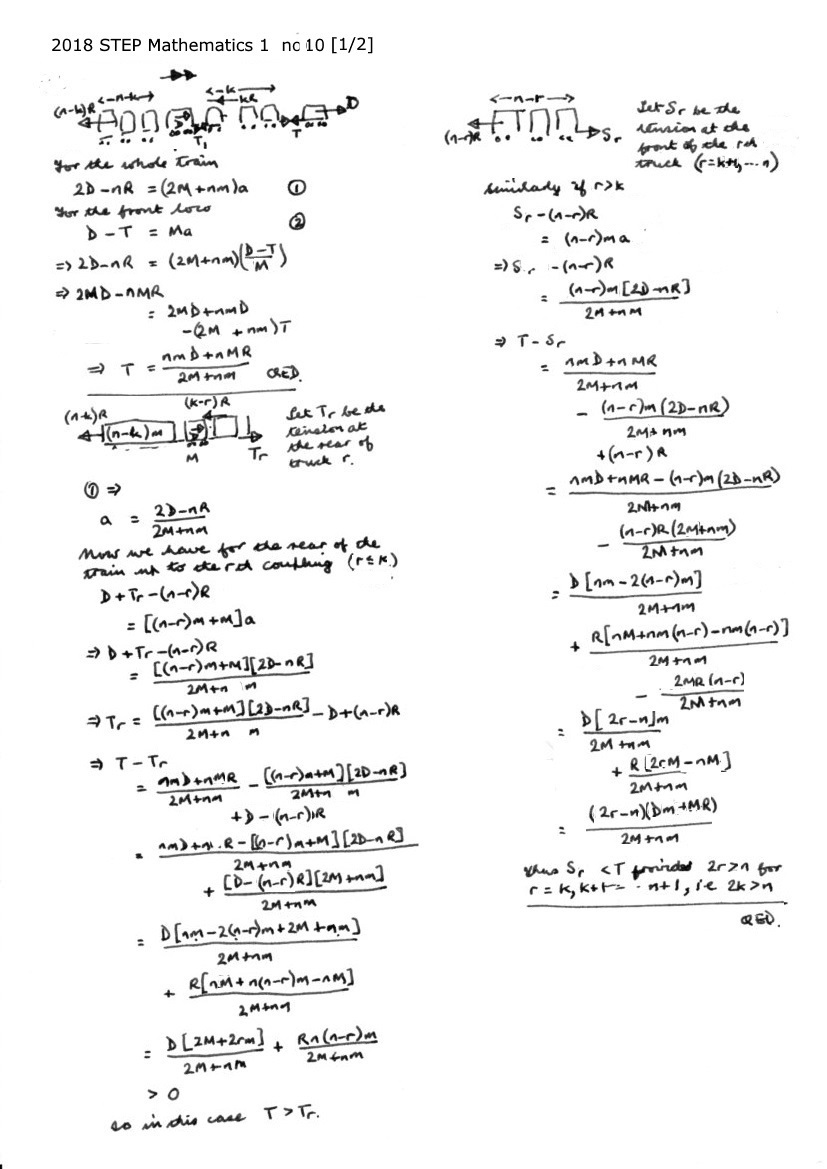 2018 STEP Mathematics 1 no 10 [1/2]
(n-k)R ←n-k→ ←k→ kR D
T₁ T
For the whole train
2D - nR = (2M + nm)a ①
For the front loco
D - T = Ma ②
⇒ 2D - nR = (2M + nm)((D-T)/M)
⇒ 2MD - nMR
= 2MD + nmD
-(2M + nm)T
⇒ T = (nmD + nMR)/(2M + nm) QED.
(n-k)R (k-r)R
(n-k)m M Tr
Let Tr be the
tension at
the rear of
truck r.
① ⇒
a = (2D - nR)/(2M + nm)
Now we have for the rear of the
train up to the rth coupling (r≤k)
D + Tr - (n-r)R
= [(n-r)m + M]a
⇒ D + Tr - (n-r)R
= [(n-r)m + M][2D - nR]/(2M + n m)
⇒ Tr = [(n-r)m + M][2D - nR]/(2M + n m) - D + (n-r)R
⇒ T - Tr
= (nmD + nMR)/(2M + nm) - [(n-r)m + M][2D - nR]/(2M + n m)
+ D - (n-r)R
= (nmD + n . R - [(n-r)m + M][2D - nR])/(2M + nm)
+ [D - (n-r)R][2M + nm]/(2M + nm)
= D[nm - 2(n-r)m + 2M + nm]/(2M + nm)
+ R[nM + n(n-r)m - nM]/(2M + nm)
= D[2M + 2rm]/(2M + nm) + Rn(n-r)m/(2M + nm)
> 0
so in this case T > Tr.
←n-r→
(n-r)R Sr
Let Sr be the
tension at the
front of the rth
truck (r=k+1,...n)
similarly if r>k
Sr - (n-r)R
= (n-r)ma
⇒ Sr - (n-r)R
= (n-r)m[2D - nR]/(2M + nm)
⇒ T - Sr
= (nmD + nMR)/(2M + nm)
- (n-r)m(2D - nR)/(2M + nm)
+ (n-r)R
= (nmD + nMR - (n-r)m(2D - nR))/(2M + nm)
- (n-r)R(2M + nm)/(2M + nm)
= D[nm - 2(n-r)m]/(2M + nm)
+ R[nM + nm(n-r) - nm(n-r)]/(2M + nm)
- 2MR(n-r)/(2M + nm)
= D[2r - n]m/(2M + nm)
+ R[2rM - nM]/(2M + nm)
= (2r - n)(Dm + MR)/(2M + nm)
thus Sr < T provided 2r > n for
r = k, k+1 - - n+1, i.e 2k > n
QED.